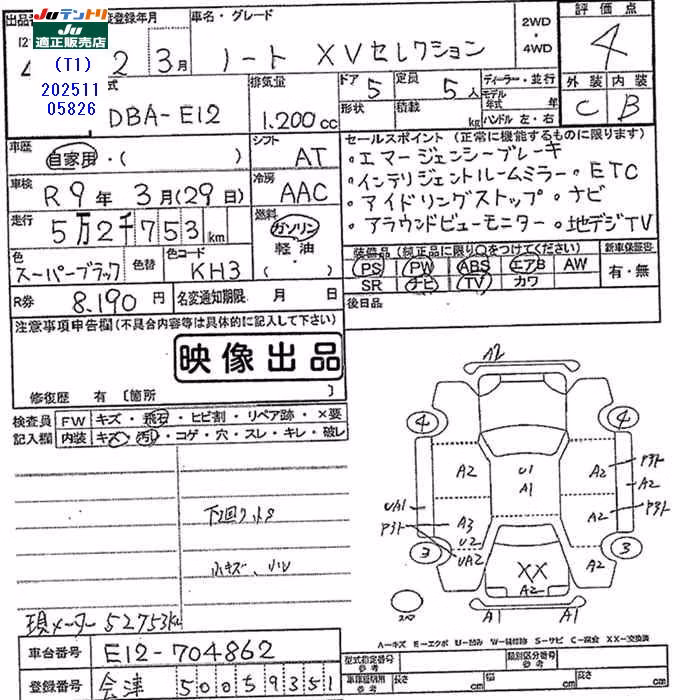 Juテントリ
適正販売店
(T1)
202511
05826
出品番
登録年月
車名・グレード
2WD
・
4WD
評価点
2 3月
ノート XVセレクション
4
ドア 5
定員 5人
ディーラー・並行
モデル年式 年
外装 内装
C B
DBA-E12
排気量
1.200cc
形状
積載 kg
ハンドル 左・右
車歴 自家用・( )
シフト AT
セールスポイント (正常に機能するものに限ります)
・エマージェンシーブレーキ
・インテリジェントルームミラー ・ETC
・アイドリングストップ ・ナビ
・アラウンドビューモニター ・地デジTV
車検 R9年 3月(29日)
冷房 AAC
走行 5万2千753km
燃料 ガソリン・軽油・( )
色 スーパーブラック
色替
色コード KH3
装備品(純正品に限り○をつけてください)
新車保証書
PS PW ABS エアB AW
SR ナビ TV カワ
有・無
R券 8.190円
名変通知期限 月 日
後日品
注意事項申告欄(不具合内容等は具体的に記入して下さい)
映像出品
修復歴 有 〔箇所 〕
検査員記入欄
FW キズ・飛石・ヒビ割・リペア跡・×要
内装 キズ・汚れ・コゲ・穴・スレ・キレ・破レ
A2
4 4
A2 U1 A1 A2 A2
UA1
A3
U2
UA2
A2
3 3
XX
A2
A2
A1 A1
小キズ、
現メーター 52753km
車台番号 E12-704862
登録番号 会津 500 59351
A-キズ E-エクボ U-凹み W-補修跡 S-サビ C-腐食 XX-交換済
型式指定番号
類別区分番号
参考
車庫証明用
参考
長さ cm
幅 cm
高さ cm